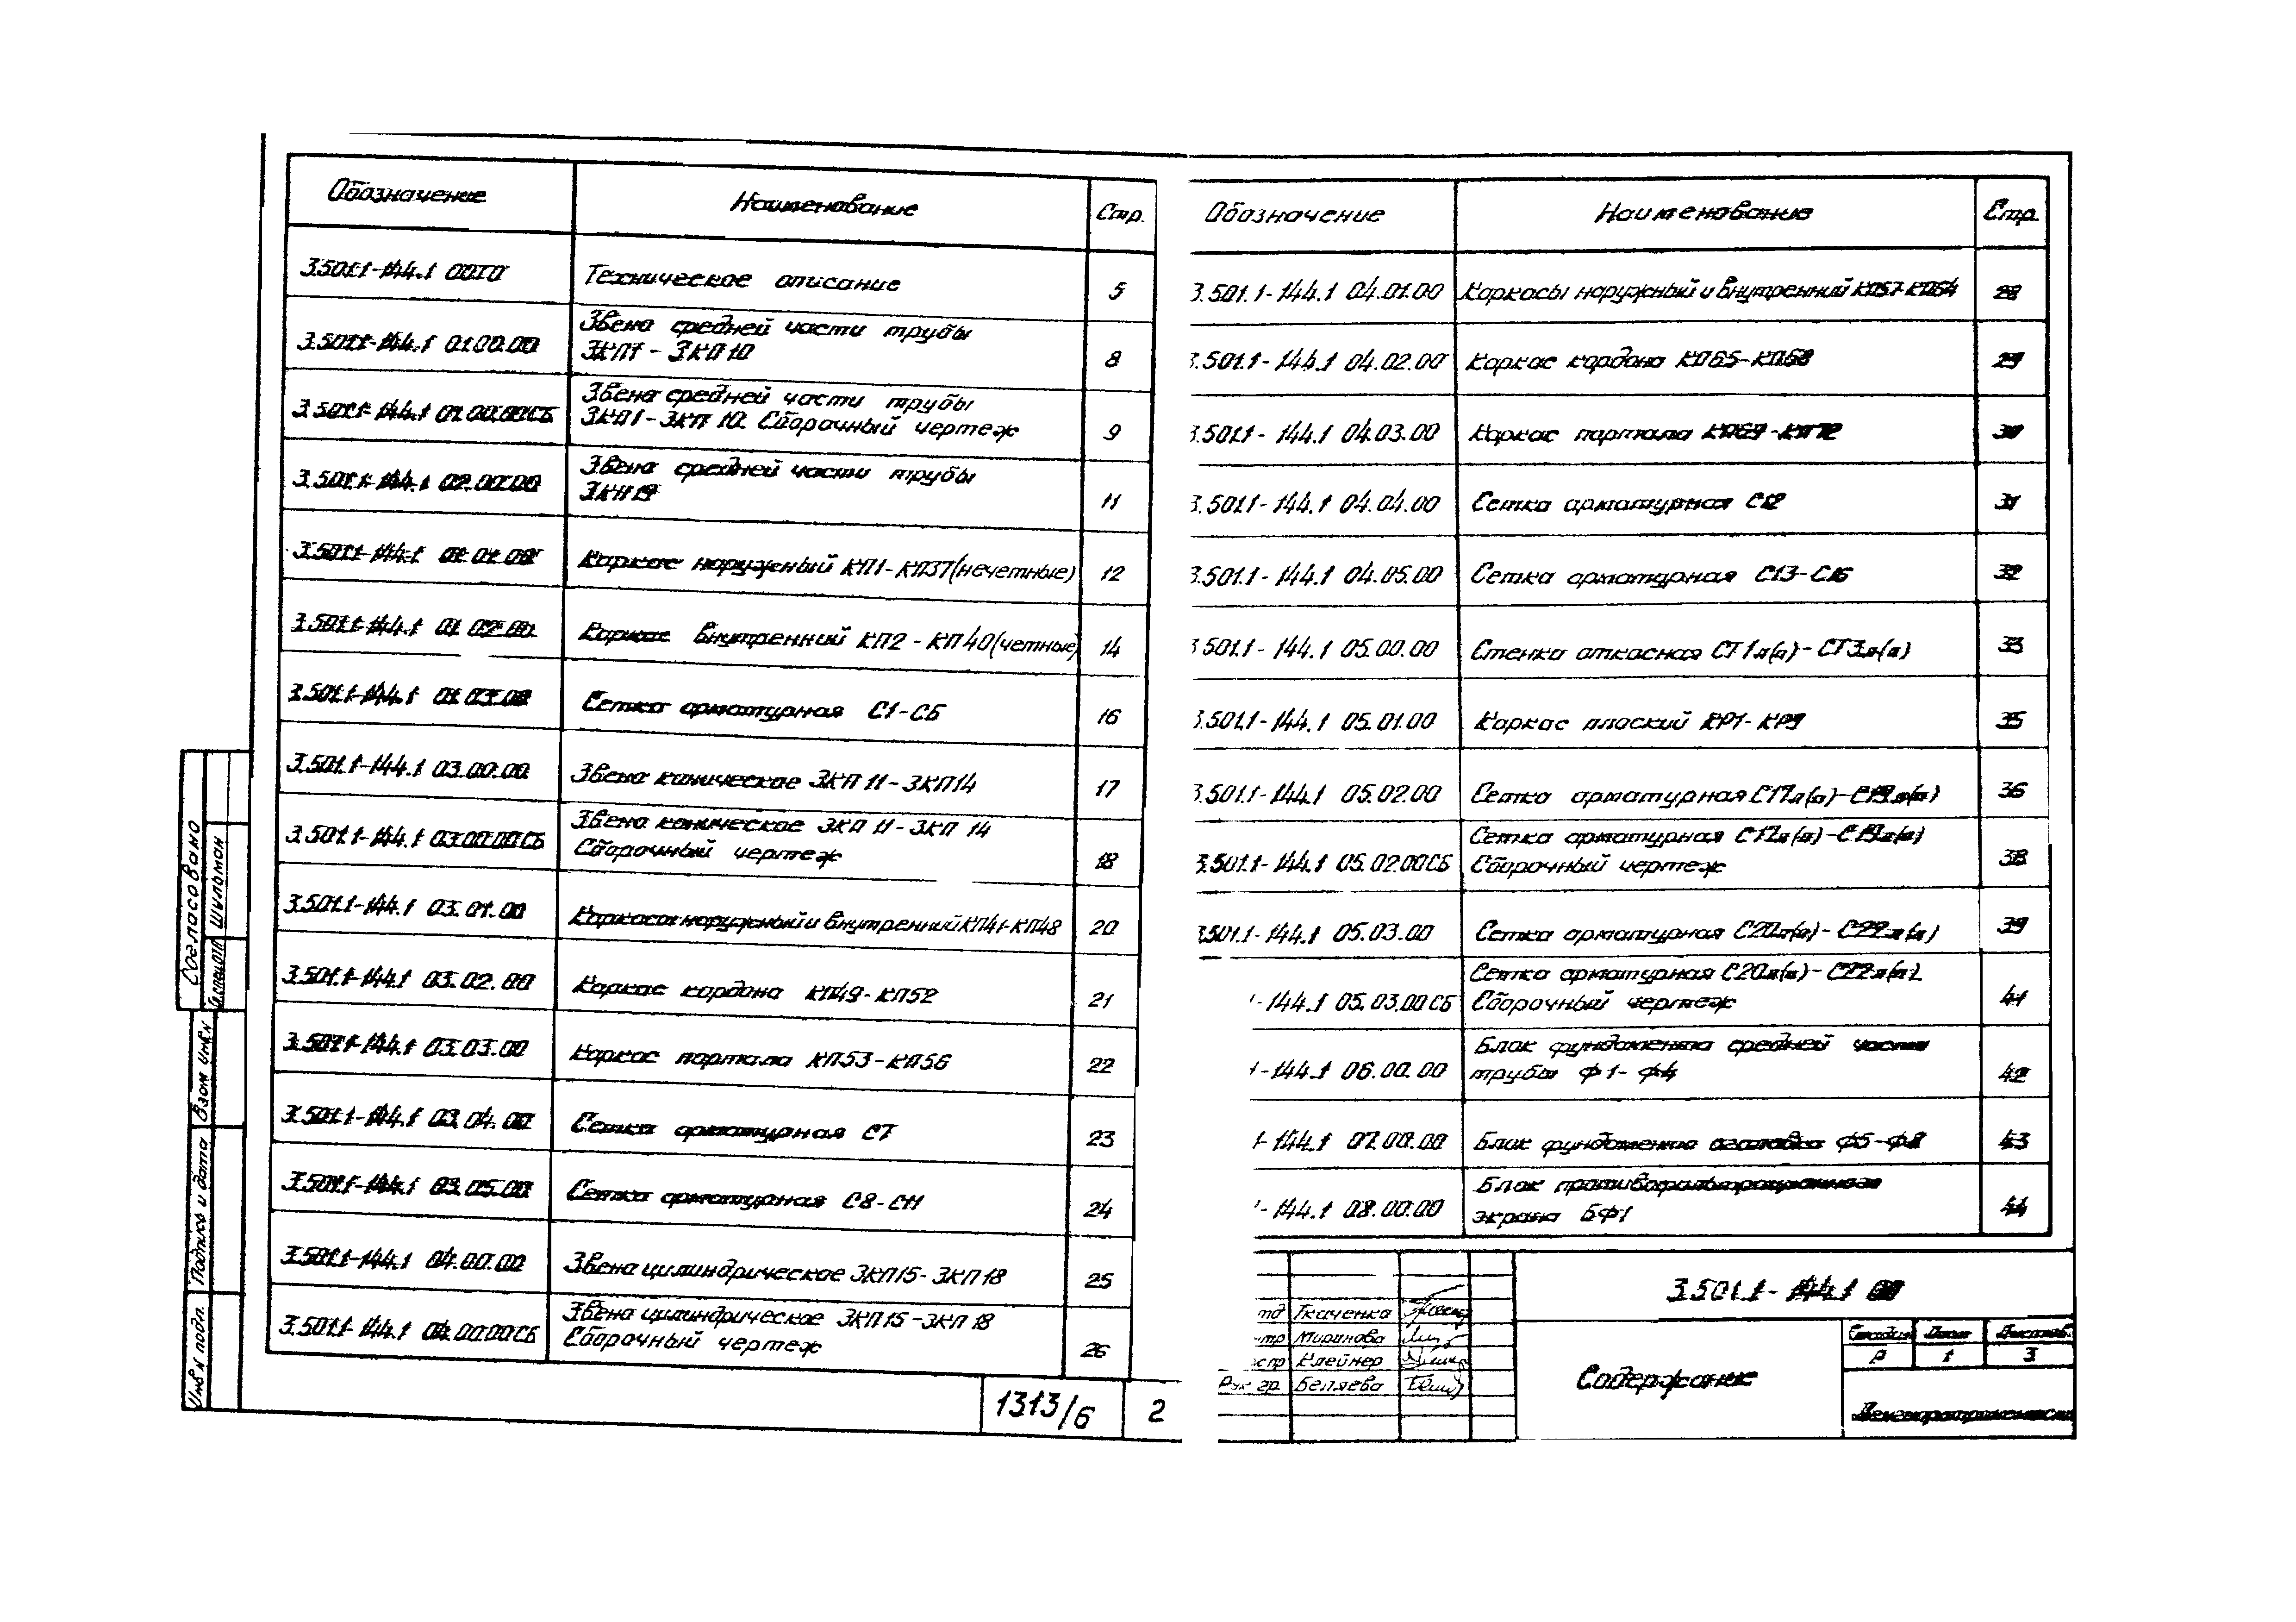 Обозначение Наименование Стр.
3.501.1-144.1 00ТО Техническое описание 5
3.501.1-144.1 01.00.00 Звено средней части трубы
ЗКП1 - ЗКП10 8
3.501.1-144.1 01.00.00СБ Звено средней части трубы
ЗКП1-ЗКП 10. Сборочный чертеж 9
3.501.1-144.1 02.00.00 Звено средней части трубы
ЗКП19 11
3.501.1-144.1 01.01.00 Каркас наружный КП1-КП37(нечетные) 12
3.501.1-144.1 01.02.00 Каркас внутренний КП2-КП40(четные) 14
3.501.1-144.1 01.03.00 Сетка арматурная С1-С6 16
3.501.1-144.1 03.00.00 Звено коническое ЗКП 11-ЗКП14 17
3.501.1-144.1 03.00.00СБ Звено коническое ЗКП 11-ЗКП 14
Сборочный чертеж 18
3.501.1-144.1 03.01.00 Каркасы наружный и внутренний КП41-КП48 20
3.501.1-144.1 03.02.00 Каркас кордона КП49-КП52 21
3.501.1-144.1 03.03.00 Каркас портала КП53-КП56 22
3.501.1-144.1 03.04.00 Сетка арматурная С7 23
3.501.1-144.1 03.05.00 Сетка арматурная С8-С11 24
3.501.1-144.1 04.00.00 Звено цилиндрическое ЗКП15-ЗКП18 25
3.501.1-144.1 04.00.00СБ Звено цилиндрическое ЗКП15-ЗКП18
Сборочный чертеж 26
1313/6 2
Согласовано
Гл.спец.ОТП Шульман
Взам инв.N
Подпись и дата
Инв N подл.
Обозначение Наименование Стр.
3.501.1-144.1 04.01.00 Каркасы наружный и внутренний КП57-КП64 28
3.501.1-144.1 04.02.00 Каркас кордона КП65-КП68 29
3.501.1-144.1 04.03.00 Каркас портала КП69-КП72 30
3.501.1-144.1 04.04.00 Сетка арматурная С12 31
3.501.1-144.1 04.05.00 Сетка арматурная С13-С16 32
3.501.1-144.1 05.00.00 Стенка откосная СТ1л(п)-СТ3л(п) 33
3.501.1-144.1 05.01.00 Каркас плоский КР1-КР9 35
3.501.1-144.1 05.02.00 Сетка арматурная С17л(п)-С19л(п) 36
3.501.1-144.1 05.02.00СБ Сетка арматурная С17л(п)-С19л(п)
Сборочный чертеж 38
3.501.1-144.1 05.03.00 Сетка арматурная С20л(п)-С22л(п) 39
1-144.1 05.03.00СБ Сетка арматурная С20л(п)-С22л(п).
Сборочный чертеж 41
1-144.1 06.00.00 Блок фундамента средней части
трубы Ф1-Ф4 42
1-144.1 07.00.00 Блок фундамента оголовка Ф5-Ф8 43
1-144.1 08.00.00 Блок противофильтрационного
экрана БФ1 44
3.501.1-144.1 00
тд Ткаченко
тр Миронова
Клейнер
Рук гр. Беляева
Содержание
Стадия Лист Листов
Р 1 3
Ленгипротрансмост